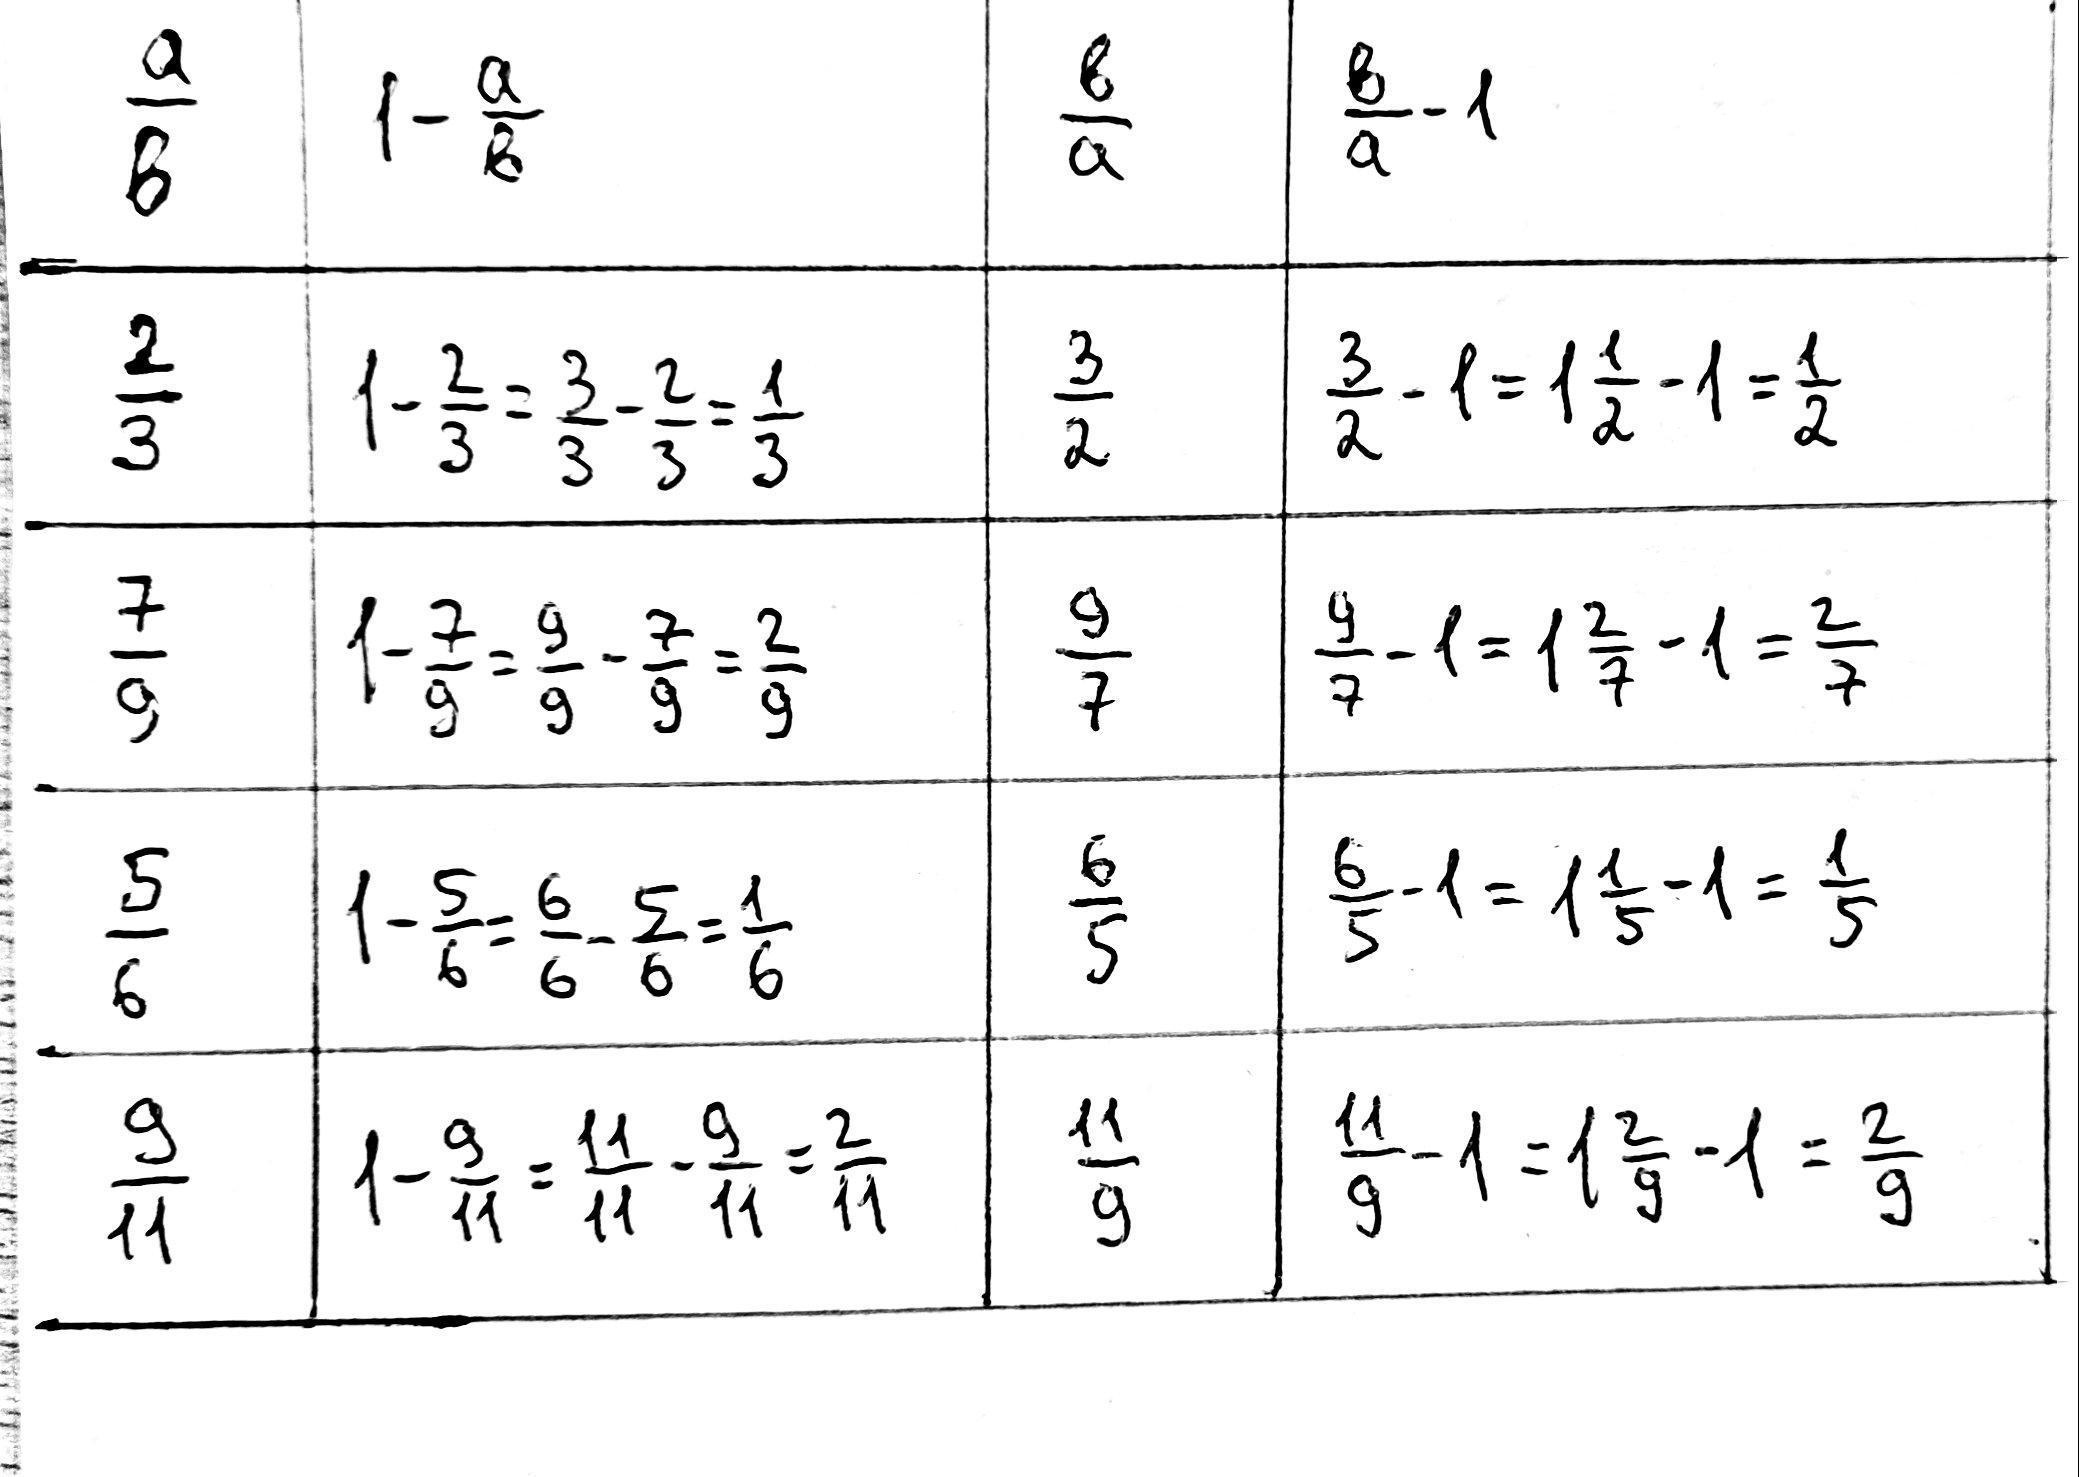 a/b 1 - a/b b/a b/a - 1
2/3 1 - 2/3 = 3/3 - 2/3 = 1/3 3/2 3/2 - 1 = 1 1/2 - 1 = 1/2
7/9 1 - 7/9 = 9/9 - 7/9 = 2/9 9/7 9/7 - 1 = 1 2/7 - 1 = 2/7
5/6 1 - 5/6 = 6/6 - 5/6 = 1/6 6/5 6/5 - 1 = 1 1/5 - 1 = 1/5
9/11 1 - 9/11 = 11/11 - 9/11 = 2/11 11/9 11/9 - 1 = 1 2/9 - 1 = 2/9